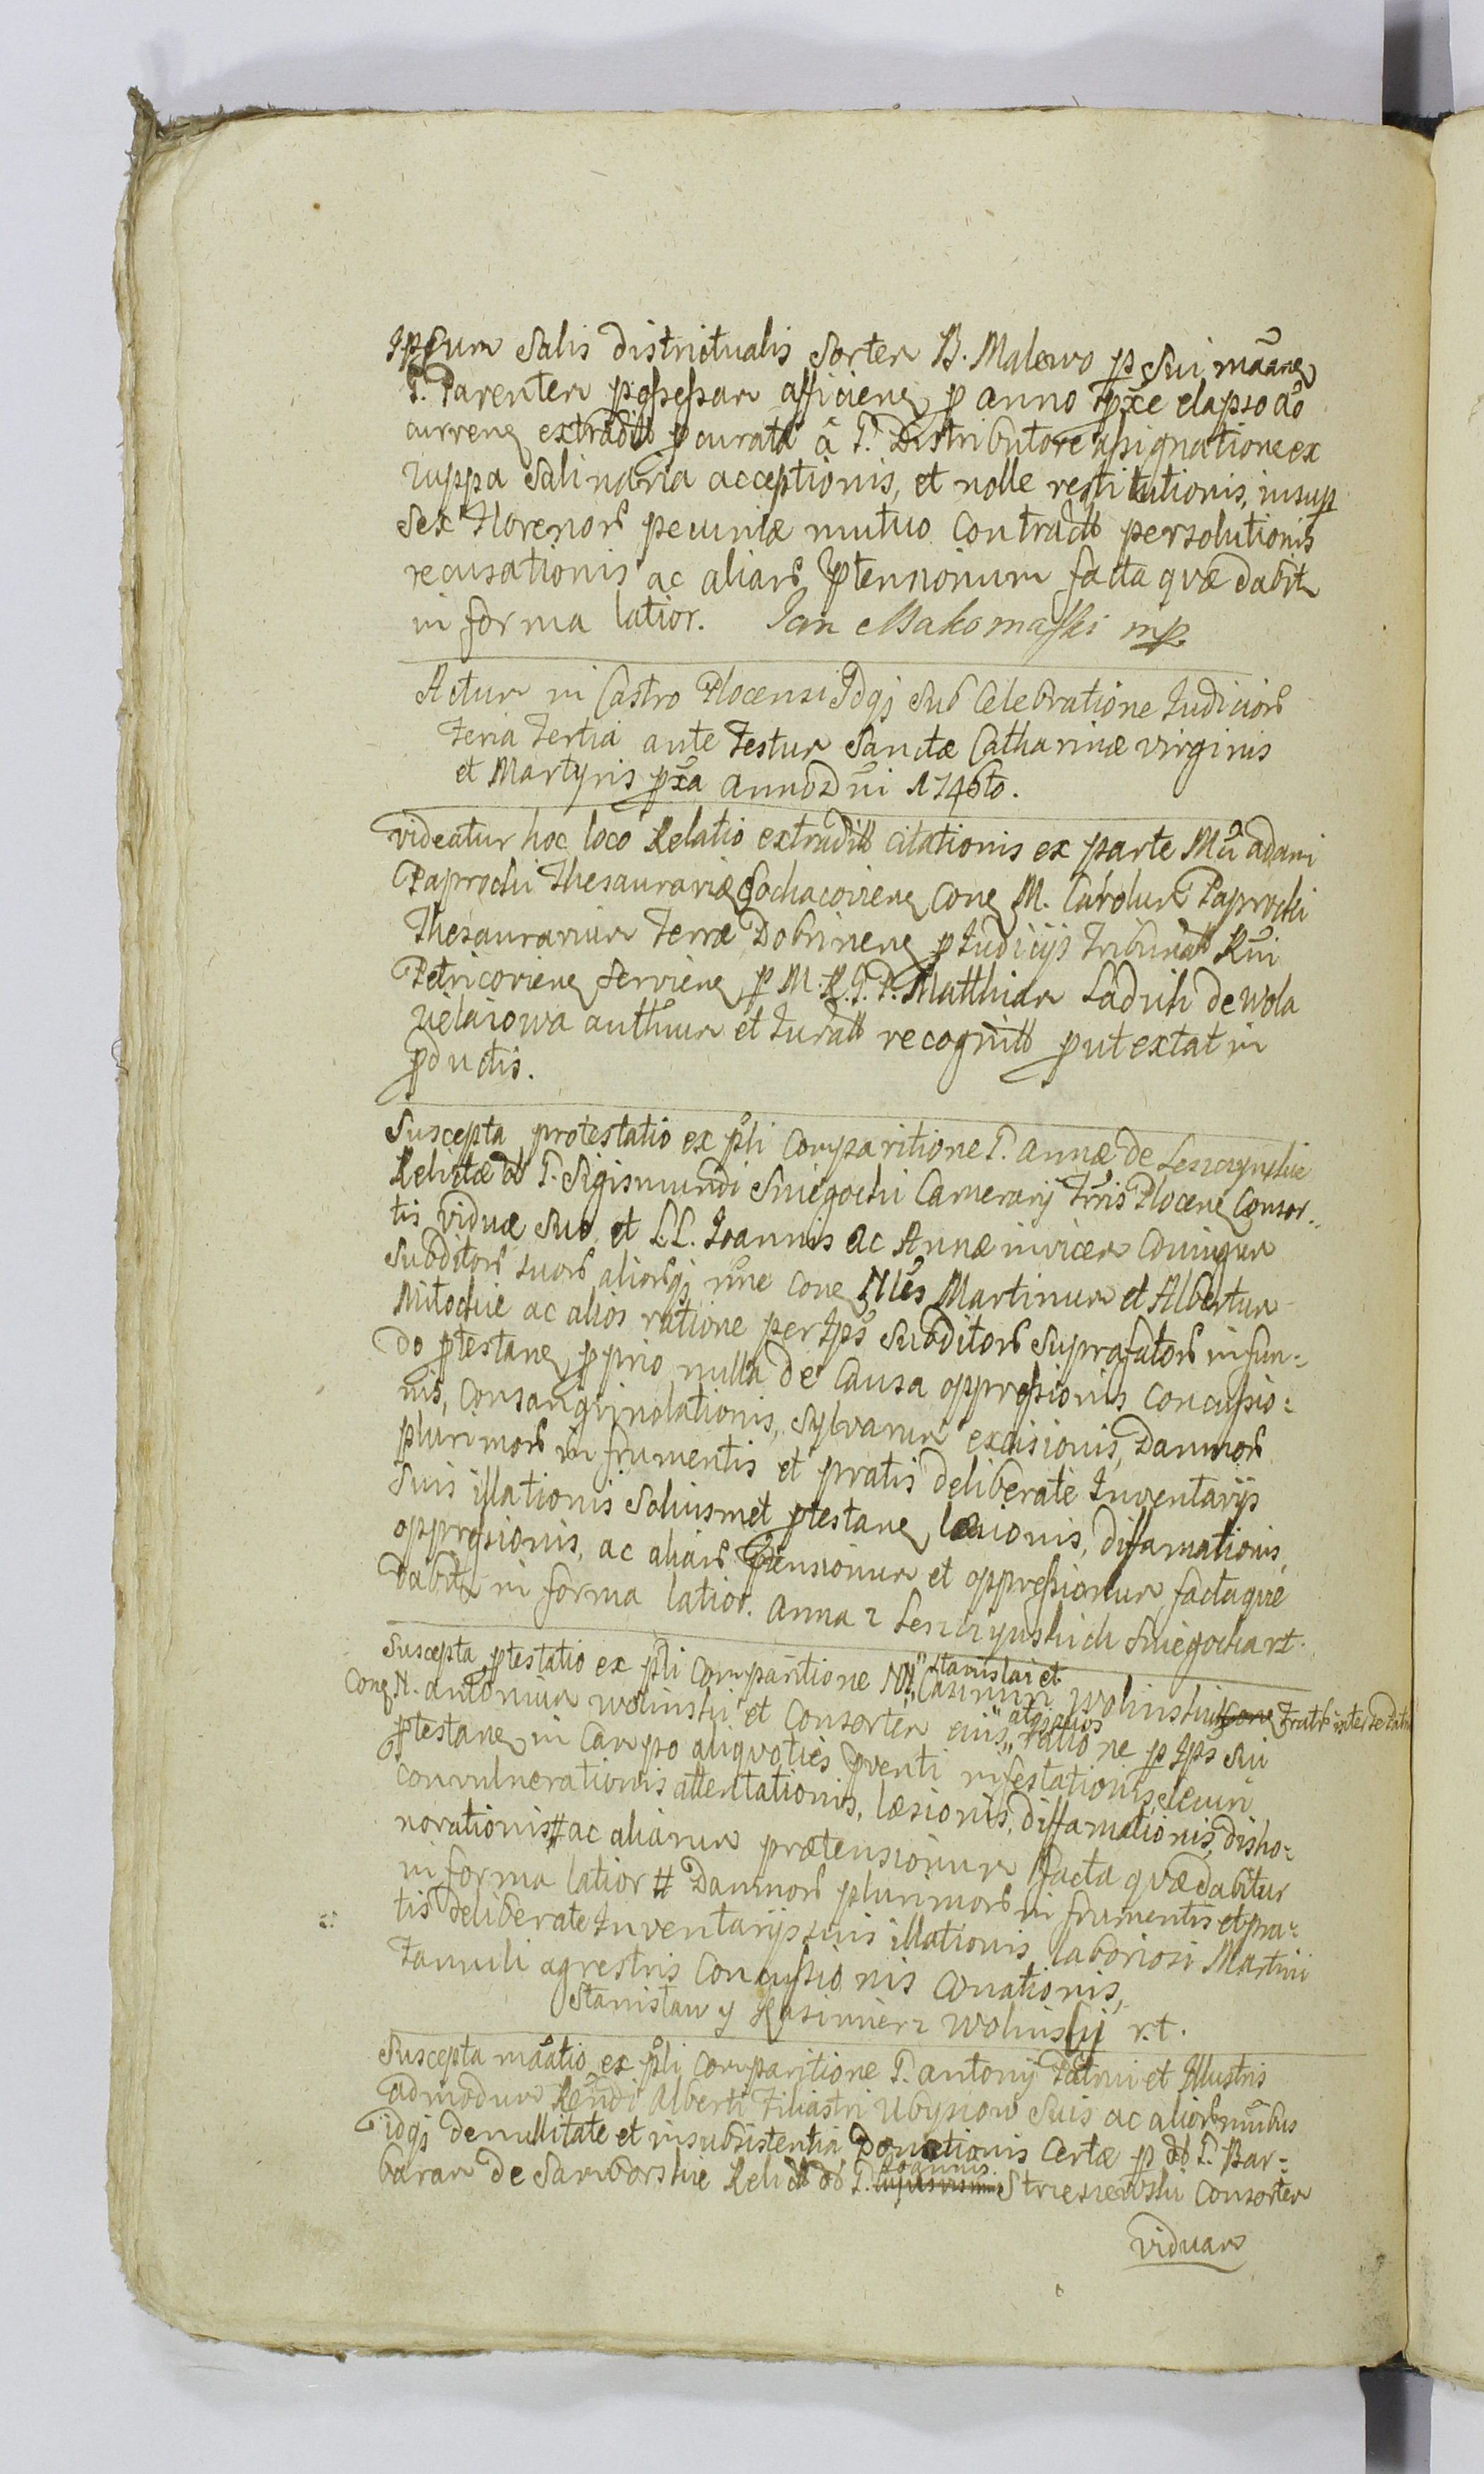 Ipsum Salis districtualis Sortem B. Malewo p Sui mãan
G. Parentem possessam afficien p anno pxe elapso ao
curren extradit pcurata â G. Distributore assignatione ex
zuppa Salinaria acceptionis, et nolle restitutionis, insup
Sex Florenor pecuniæ mutuo Contract persolutionis
recusationis ac aliar ptensionum facta quæ dabit
in forma latior. Jan Makomaski mp.
Actum in Castro Plocensi Idq Sub Celebratione Iudicior
Feria Tertia ante Festum Sanctæ Catharinæ Virginis
et Martyris pxa Anno Dni 1746to.
Videatur hoc loco Relatio extradit citationis ex parte M Adami
Paprocki Thesaurarij Sochacovien Con M. Carolum Paprocki
Thesaurarium Terræ Dobrinen p Iudicijs Tribunal Rni
Petricovien Servien p M. R. G. D. Matthiam Laduch de Wola
authum et Jurat recognit put extat in
pductis.
Suscepta protestatio ex pli Comparitione G. Annæ de
Relictæ G. Sigismundi Sniegocki Camerarij Tris Plocen Consor-
tis viduæ Suo et L.L. Joannis ac Annæ invicem Coniugum
Subditor Suor aliorq nne Con Nles Martinum et Albertum
Mitockie ac alios ratione per Ips Subditor Suprafator in fun=
do ptestan pprio nulla de Causa oppressionis Concussio=
nis, Consanguinolationis, Sylvarum excisionis, Damnor
plurimor in frumentis et pratis deliberate Inventarijs
Suis illationis Soliusmet ptestan læsionis, diffamationis,
oppressionis, ac aliar ptensionum et oppressionum facta quæ
dabit in forma latior. Anna z Sniegocka rt.
Suscepta ptestatio ex pli Comparitione NN Stanislai et Casimiri Wolinski Fratr
Con N. Antonium Wolinski et Consortem eius atq alios ratione p Ips Sui
ptestan in Campo aliquoties pventi infestationis,
convulnerationis attentationis, læsionis, diffamationis, disho=
norationis # ac aliarum prætensionum facta quæ dabitur
in forma latior # Damnor plurimor in frumentis et pra=
tis deliberate Inventarijs suis illationis laboriosi Martini
Famuli agrestris Concussionis Conationis,
Stanisław y Kazimierz Wolinscy r.t.
Suscepta mãatio ex pli Comparitione G. Antonij Patrui et Illustris
admodum Rendi Alberti Filiastri Ubyszow Suis ac alior nnibus
idq de nullitate et insubsistentia Donationis Certæ p G. Bar=
baram de Samborskie Relict G. Joannis Consortem
viduam